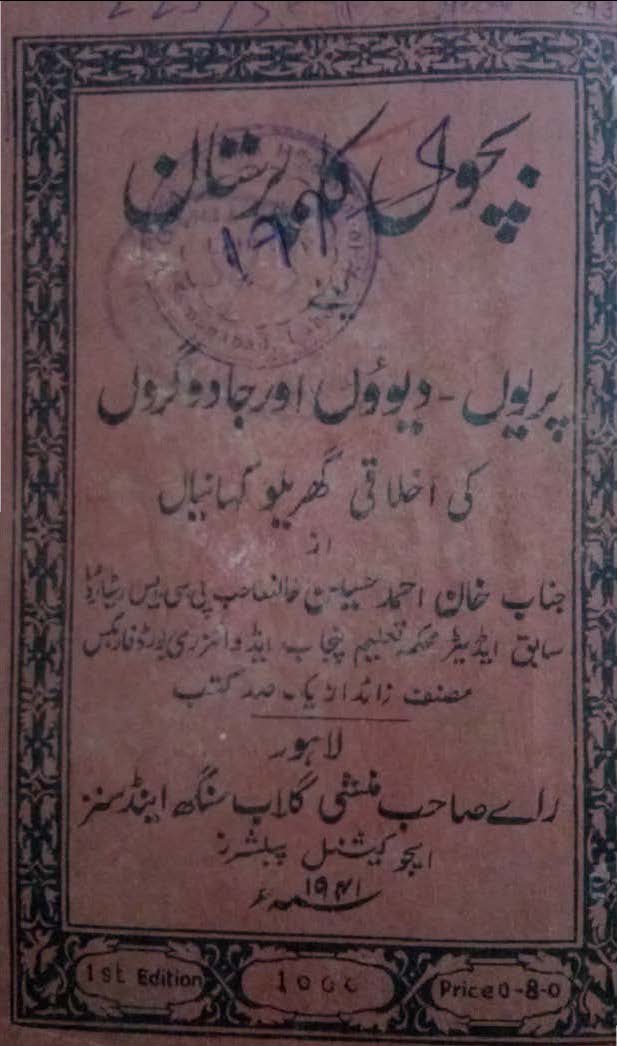 بچوں کا پرستان
۱۹۲
یعنے
پریوں - دیوؤں اور جادوگروں
کی اخلاقی گھریلو کہانیاں
از
جناب خان احمد حسین خانصاحب پی سی ایس ریٹائرڈ
سابق ایڈیٹر محکمہ تعلیم پنجاب ایڈوائزری بورڈ فاربکس
مصنف زائد از یک صد کتب
لاہور
رائے صاحب منشی گلاب سنگھ اینڈ سنز
ایجوکیشنل پبلشرز
۱۹۴۱ء
1st Edition 1000 Price 0-8-0